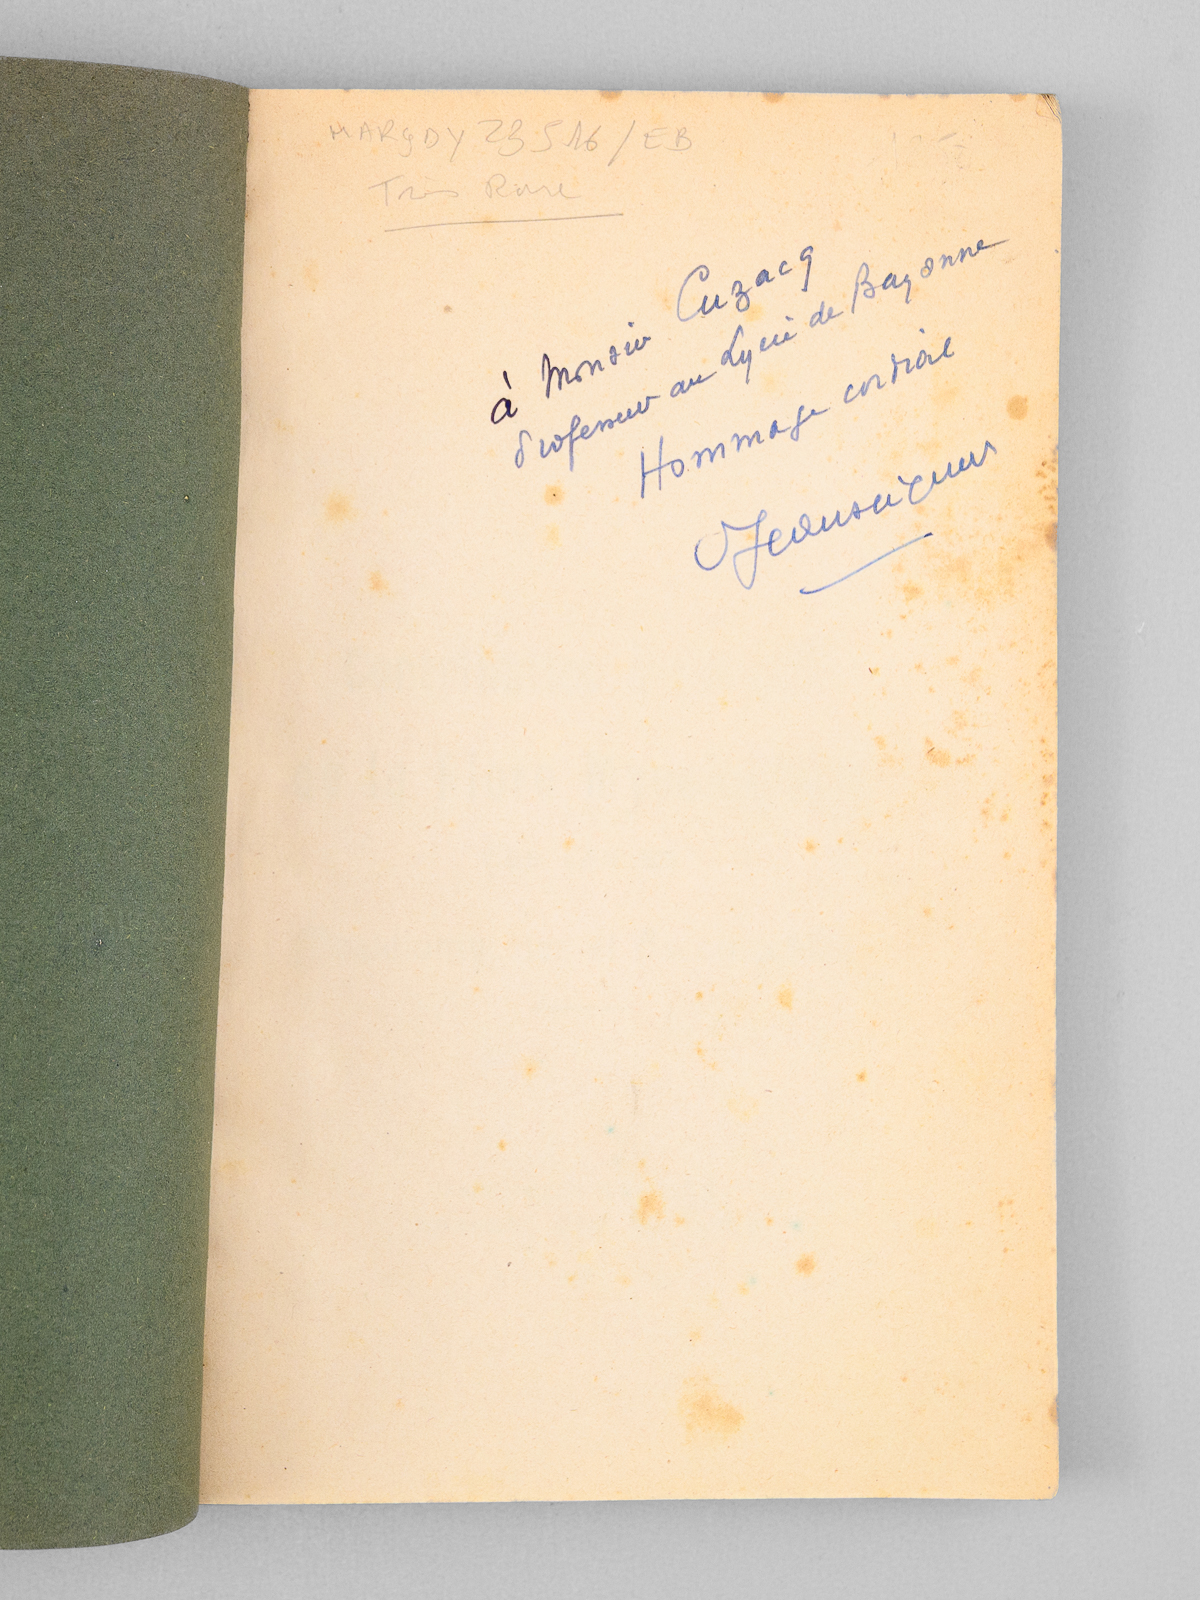 MARGDY 23516/EB
Très Rare
à Monsieur Cuzacq
Professeur au Lycée de Bayonne
Hommage cordial